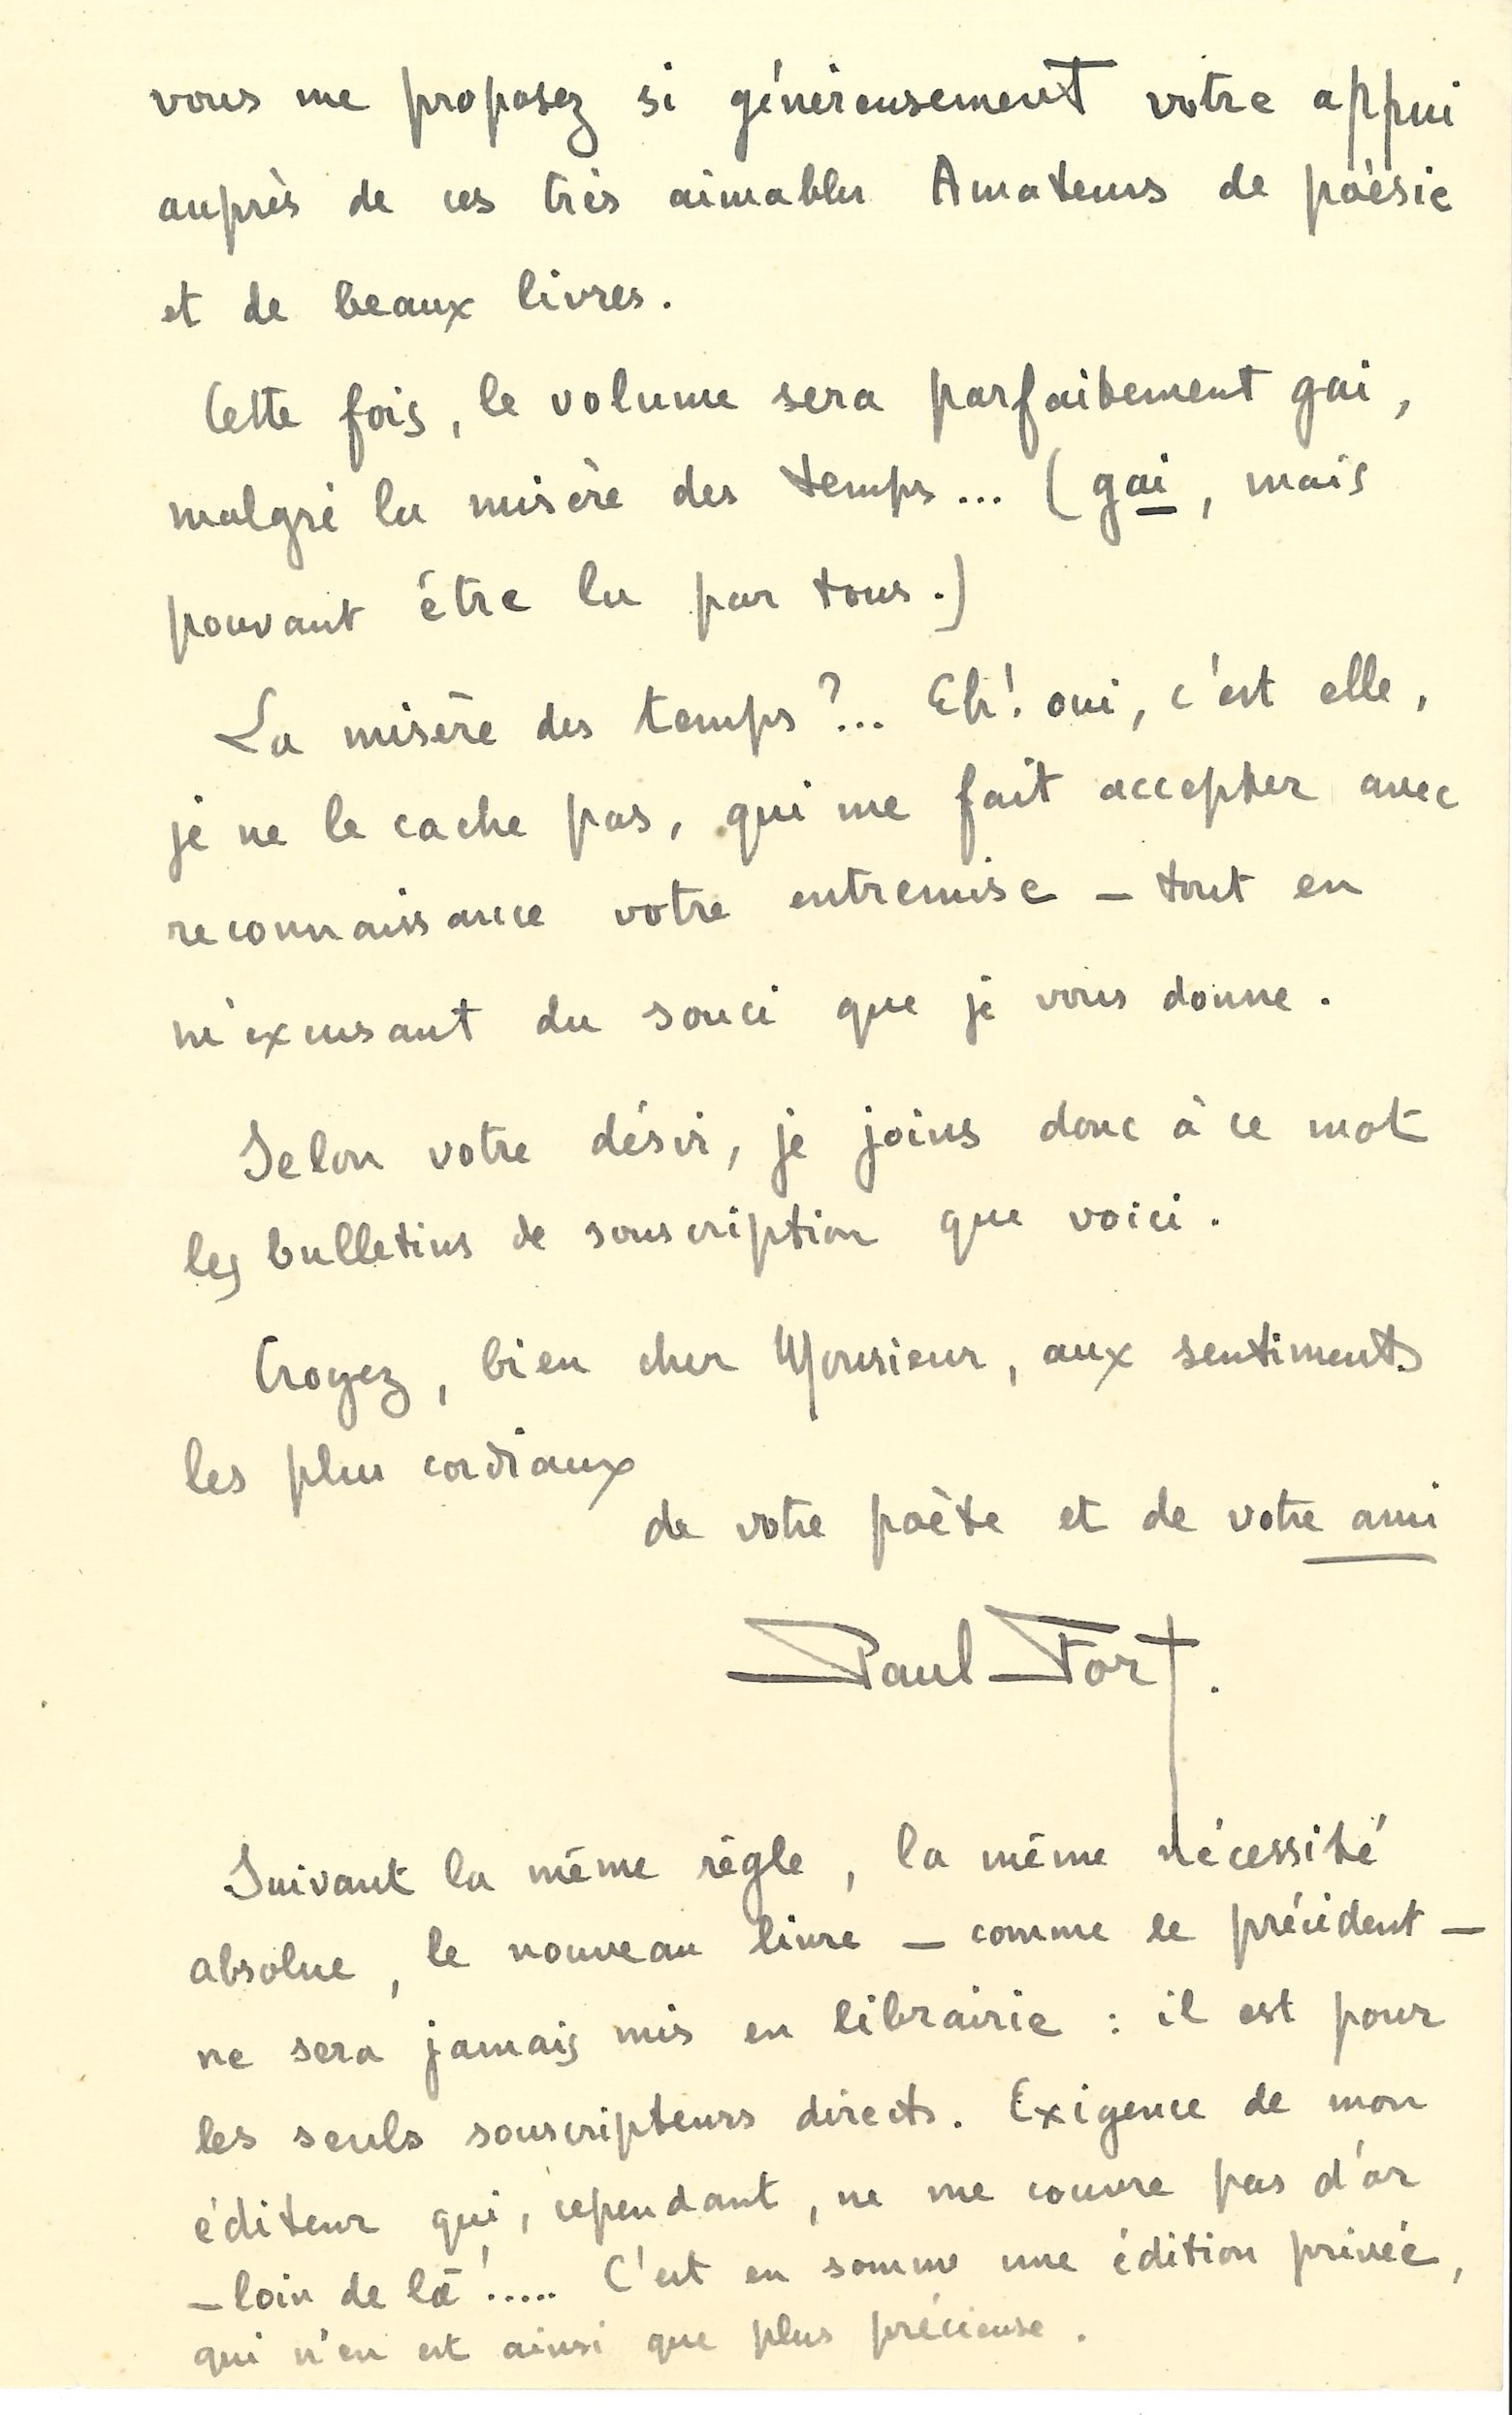 vous me proposez si généreusement votre appui
auprès de ces très aimables Amateurs de poésie
et de beaux livres.
Cette fois, le volume sera parfaitement gai,
malgré la misère des temps... (gai, mais
pouvant être lu par tous.)
La misère des temps ?... Eh! oui, c'est elle,
je ne le cache pas, qui me fait accepter avec
reconnaissance votre entremise – tout en
m'excusant du souci que je vous donne.
Selon votre désir, je joins donc à ce mot
les bulletins de souscription que voici.
Croyez, bien cher Monsieur, aux sentiments
les plus cordiaux
de votre poète et de votre ami
Paul Fort.
Suivant la même règle, la même nécessité
absolue, le nouveau livre – comme le précédent –
ne sera jamais mis en librairie : il est pour
les seuls souscripteurs directs. Exigence de mon
éditeur qui, cependant, ne me couvre pas d'or
– loin de là !..... C'est en somme une édition privée,
qui n'en est ainsi que plus précieuse.